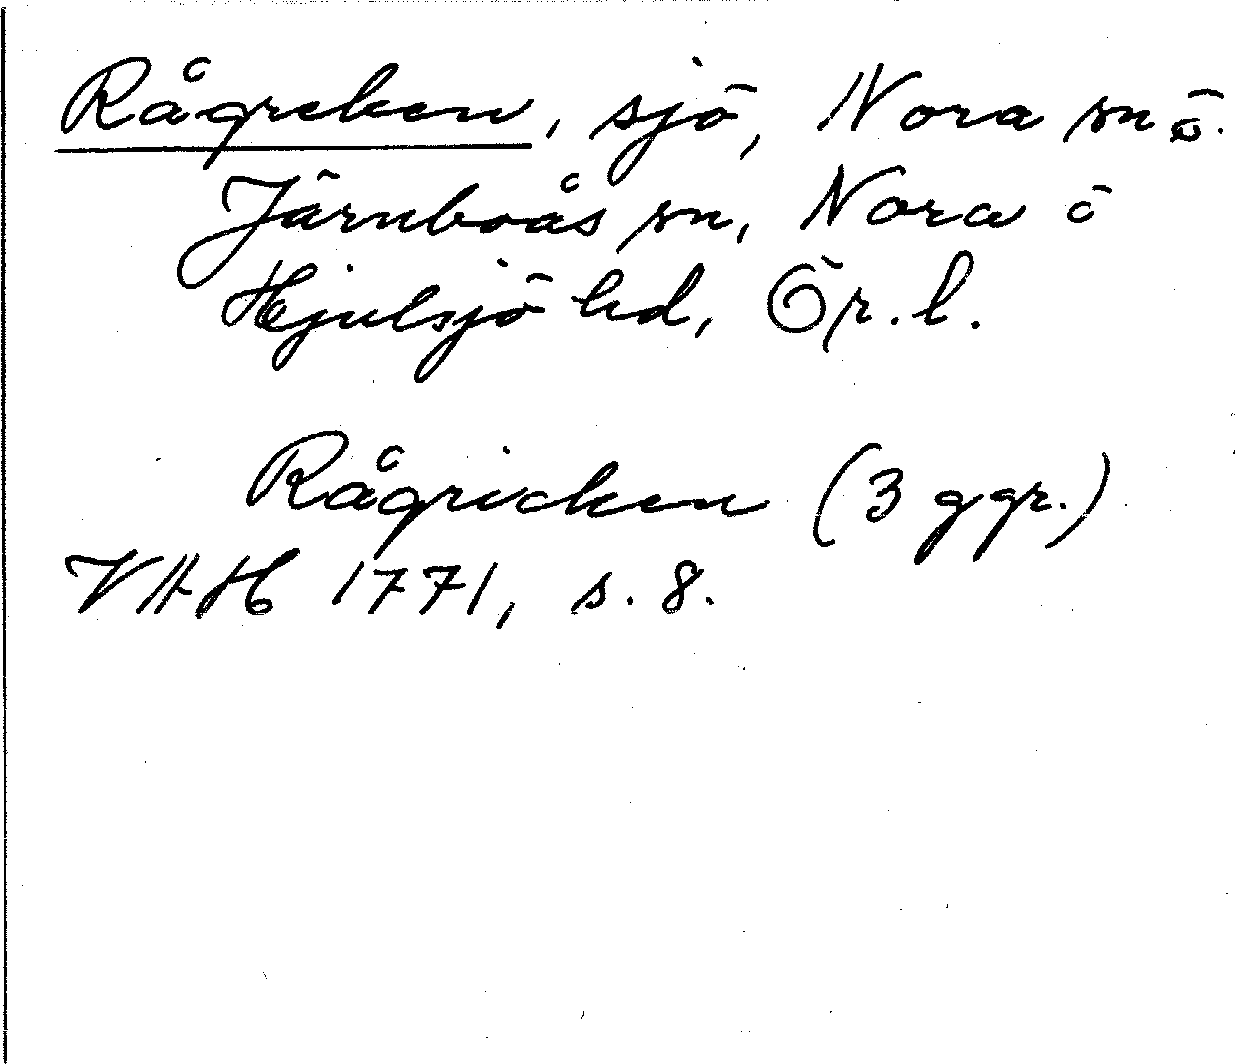 Rågreken, sjö, Nora sn o.
Järnboås sn, Nora o
Hjulsjö hd, Ör. l.
Rågricken (3 ggr.)
VHAH 1771, s. 8.